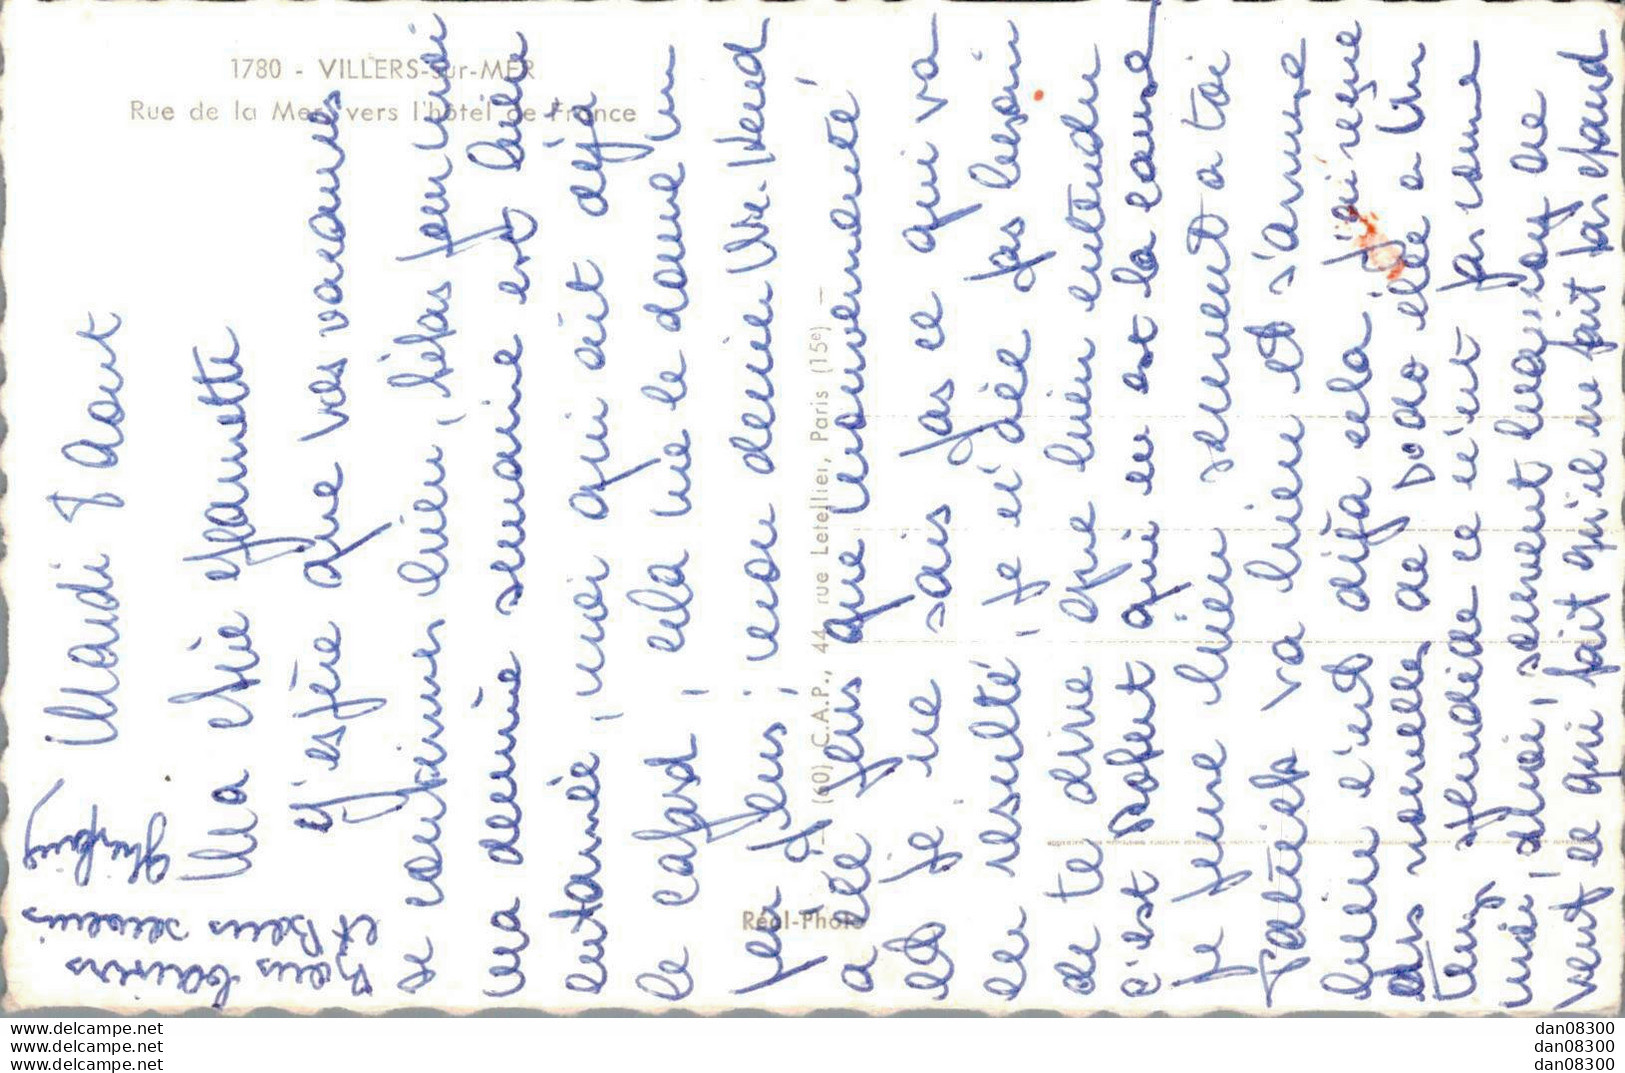 1780 - VILLERS-sur-MER
Rue de la Mer, vers l'hôtel de France
(60) C.A.P., 44, rue Letellier, Paris (15e)
Réal-Photo
Mardi 8 Aout
Ma chère Jeannette
J'espère que vos vacances
se continues bien, hélas pour moi
ma dernière semaine est bien
entamée, moi qui ait déja
le cafard, cela me le donne un
peu plus, mon dernier Wee-Kend
a été plus que mouvementé,
et je ne sais pas ce qui va
en resulté, je n'ai pas besoin
de te dire que bien entendu
c'est Robert qui en est la cause
je pense bien souvent a toi
Patrick va bien et s'amuse
bien c'est déja cela, j'ai reçue
des nouvelles de Dodo elle a Un
temps splendide ce n'est pas comme
moi, ici, souvent brouillons ne
veut ce qui fait qu'il ne fait pas chaud
Bons baisers
et Bons souvenirs